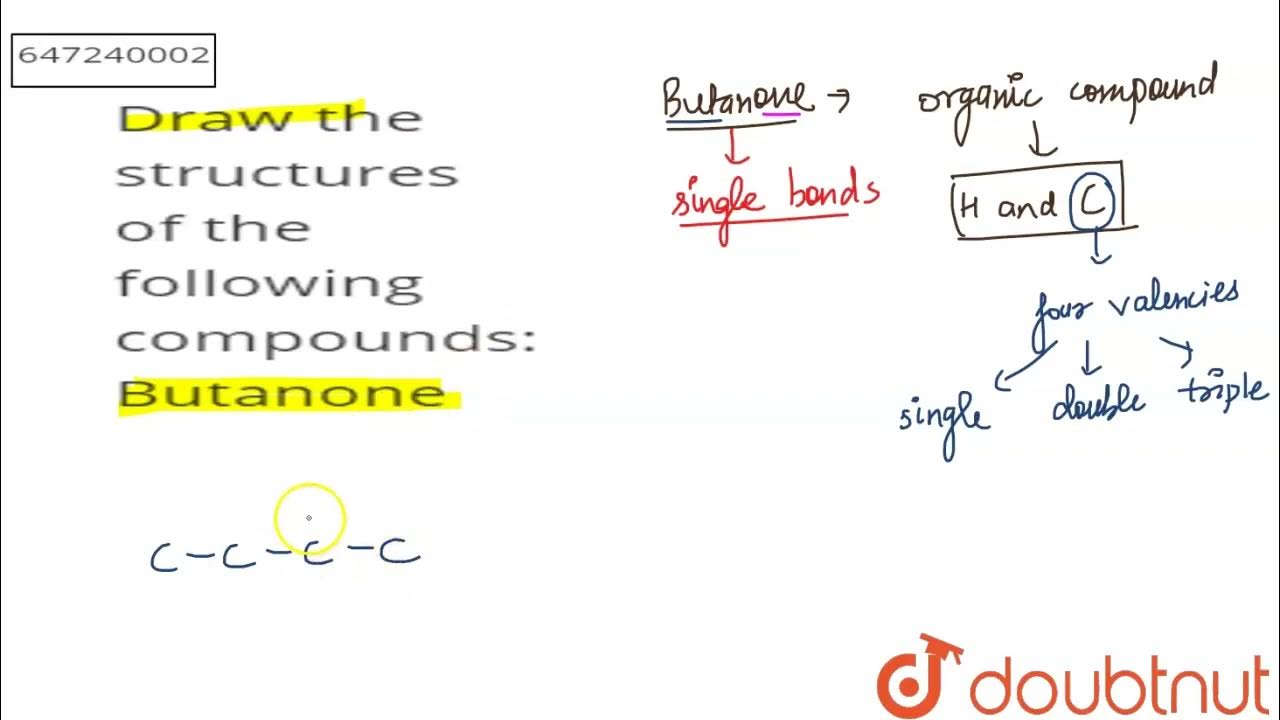 647240002
Draw the
structures
of the
following
compounds:
Butanone
C-C-C-C
Butanone → organic compound
single bonds
H and C
four valencies
single double triple
doubtnut